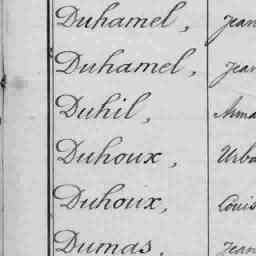 Duhamel, Jean
Duhamel, Jean
Duhil, Arma
Duhoux, Urba
Duhoux, Louis
Dumas, Jean